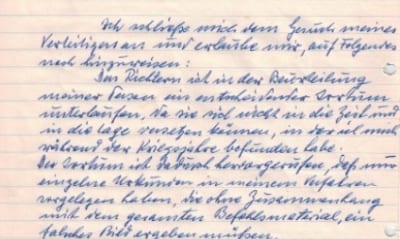 Ich schließe mich dem Gesuch meines
Verteidigers an und erlaube mir, auf folgendes
noch hinzuweisen:
Den Richtern ist in der Beurteilung
meiner Person ein entscheidender Irrtum
unterlaufen, da sie sich nicht in die Zeit und
in die Lage versetzen können, in der ich mich
während der Kriegsjahre befunden habe.
Der Irrtum ist dadurch hervorgerufen, daß nur
einzelne Urkunden in meinem Verfahren
vorgelegen haben, die ohne Zusammenhang
mit dem gesamten Befehlsmaterial, ein
falsches Bild ergeben müssen.